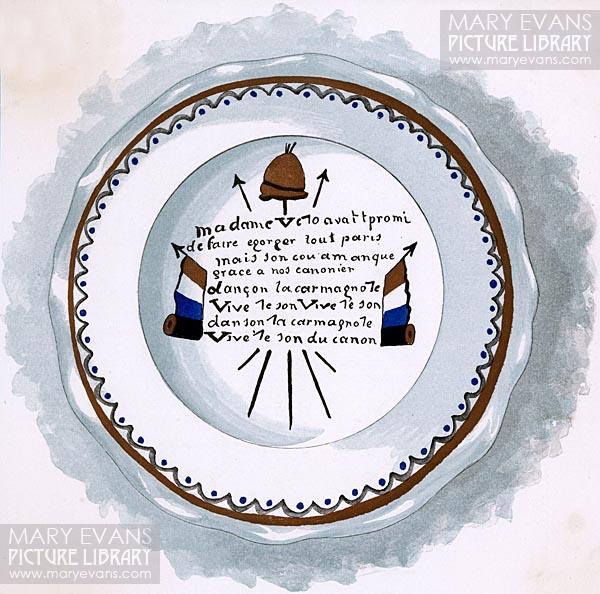 MARY EVANS
PICTURE LIBRARY
www.maryevans.com
madame veto avait promi
de faire egorger tout paris
mais son cou a manque
grace a nos canonier
dançon la carmagnole
Vive le son Vive le son
danson la carmagnole
Vive le son du canon
MARY EVANS
PICTURE LIBRARY
www.maryevans.com